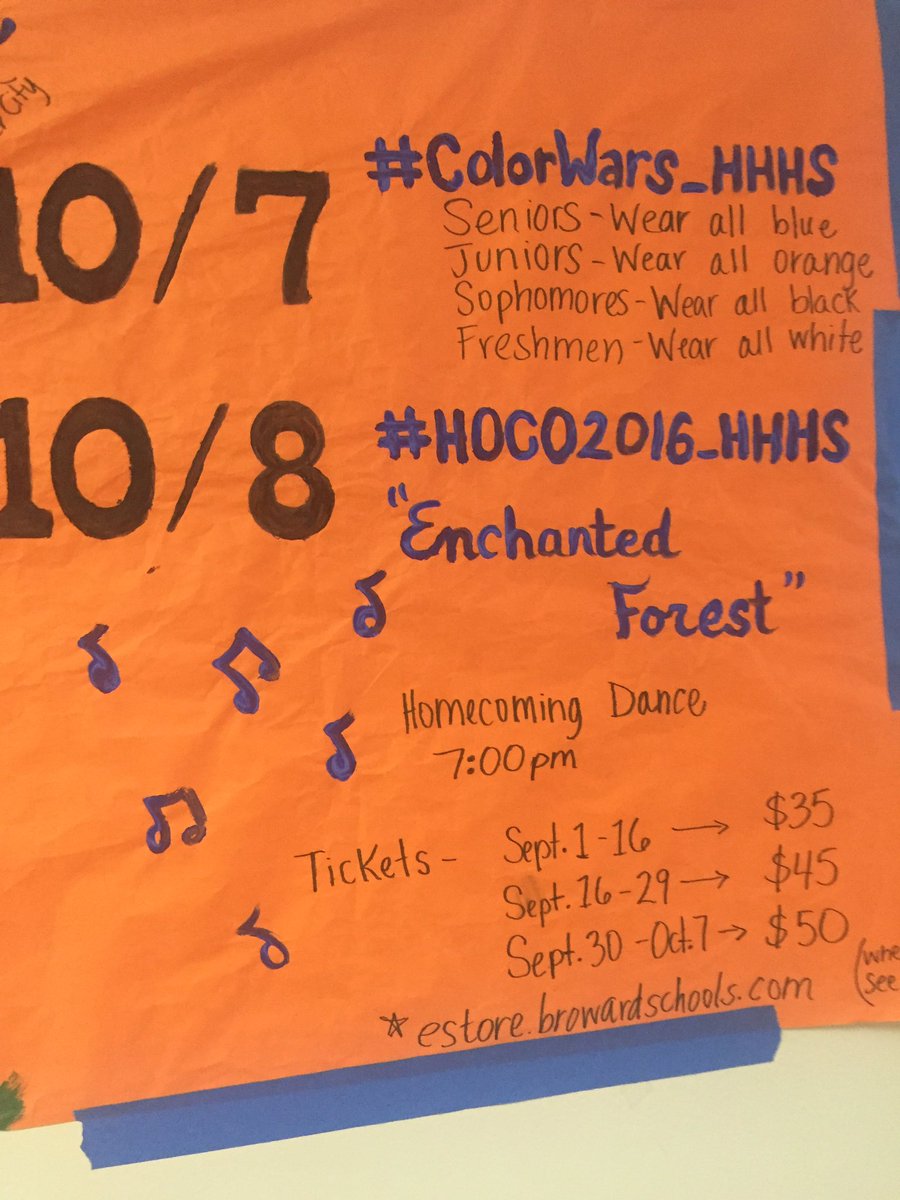 City
10/7
#ColorWars_HHHS
Seniors-Wear all blue
Juniors-Wear all orange
Sophomores-Wear all black
Freshmen-Wear all white
10/8
#HOCO2016_HHHS
"Enchanted
Forest"
Homecoming Dance
7:00pm
Tickets- Sept. 1-16 → $35
Sept. 16-29 → $45
Sept. 30-Oct. 7 → $50
(whe
see
*estore.browardschools.com